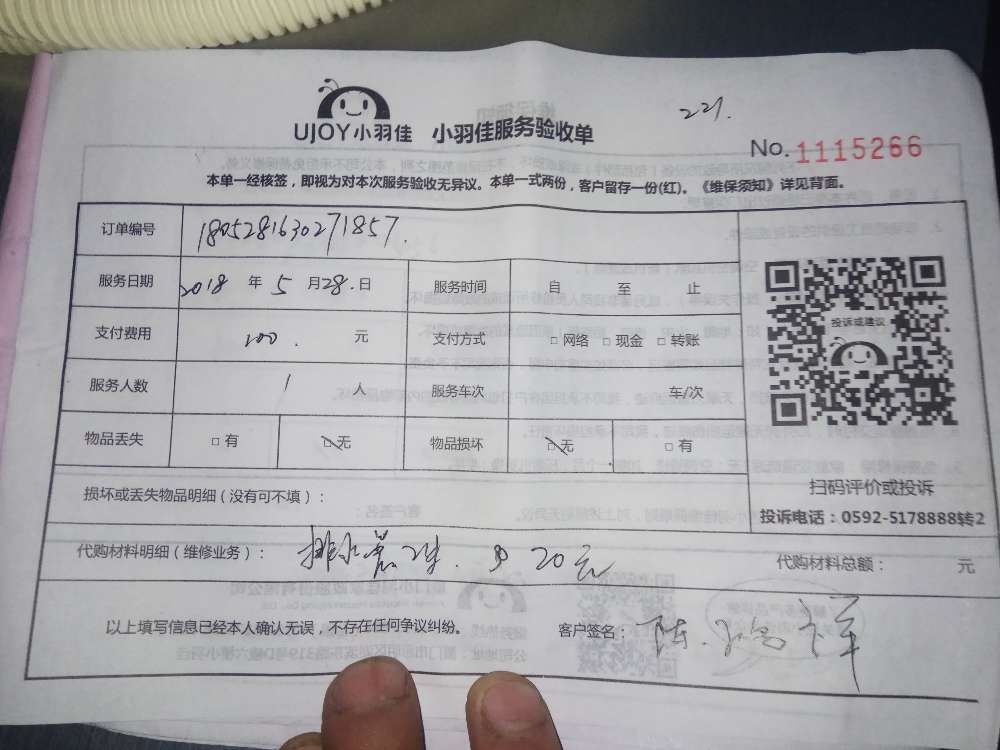 221.
UJOY小羽佳 小羽佳服务验收单
No.1115266
本单一经核签，即视为对本次服务验收无异议。本单一式两份，客户留存一份(红)。《维保须知》详见背面。
订单编号 1805281630271857.
服务日期 2018 年 5 月 28. 日 服务时间 自 至 止
支付费用 200. 元 支付方式 □ 网络 □ 现金 □ 转账
服务人数 1 人 服务车次 车/次
物品丢失 □ 有 □ 无 物品损坏 □ 无 □ 有
投诉或建议
扫码评价或投诉
投诉电话：0592-5178888转2
损坏或丢失物品明细（没有可不填）：
代购材料明细（维修业务）： 排水管 20元 代购材料总额： 元
以上填写信息已经本人确认无误，不存在任何争议纠纷。 客户签名： 陈